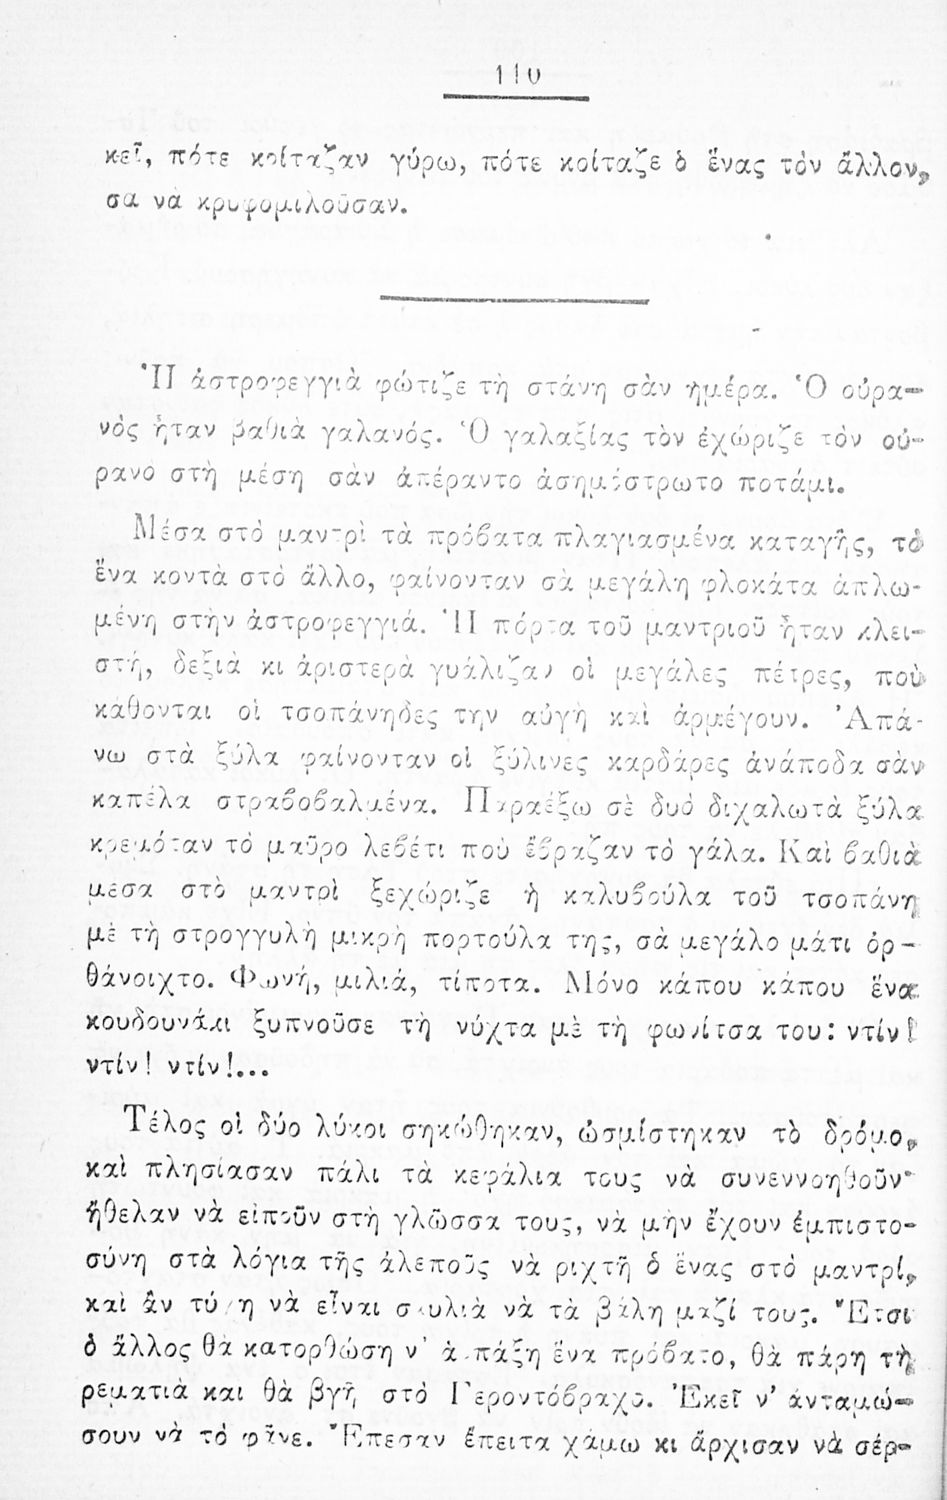 110
κεῖ, πότε κοίταζαν γύρω, πότε κοίταζε ὁ ἕνας τὸν ἄλλον,
σα νὰ κρυφομιλοῦσαν.
Ἡ ἀστροφεγγιὰ φώτιζε τὴ στάνη σὰν ἡμέρα. Ὁ οὐρα-
νὸς ἦταν βαθιὰ γαλανός. Ὁ γαλαξίας τὸν ἐχώριζε τὸν οὐ-
ρανὸ στὴ μέση σὰν ἀπέραντο ἀσημόστρωτο ποτάμι.
Μέσα στὸ μαντρὶ τὰ πρόβατα πλαγιασμένα καταγῆς, τὸ
ἕνα κοντὰ στὸ ἄλλο, φαίνονταν σὰ μεγάλη φλοκάτα ἁπλω-
μένη στὴν ἀστροφεγγιά. Ἡ πόρτα τοῦ μαντριοῦ ἦταν κλει-
στή, δεξιὰ κι ἀριστερὰ γυάλιζαν οἱ μεγάλες πέτρες, ποὺ
κάθονται οἱ τσοπάνηδες την αὐγὴ καὶ ἀρμέγουν. Ἀπά-
νω στὰ ξύλα φαίνονταν οἱ ξύλινες καρδάρες ἀνάποδα σὰν
καπέλα στραβοβαλμένα. Παραέξω σὲ δυὸ διχαλωτὰ ξύλα
κρεμόταν τὸ μαῦρο λεβέτι ποὺ ἔβραζαν τὸ γάλα. Καὶ βαθιὰ
μεσα στὸ μαντρὶ ξεχώριζε ἡ καλυβούλα τοῦ τσοπάνη
μὲ τὴ στρογγυλὴ μικρὴ πορτούλα της, σὰ μεγάλο μάτι ὀρ-
θάνοιχτο. Φωνή, μιλιά, τίποτα. Μόνο κάπου κάπου ἕνα
κουδουνάκι ξυπνοῦσε τὴ νύχτα μὲ τὴ φωνίτσα του: ντίν!
ντίν! ντίν!...
Τέλος οἱ δύο λύκοι σηκώθηκαν, ὠσμίστηκαν τὸ δρόμο,
καὶ πλησίασαν πάλι τὰ κεφάλια τους νὰ συνεννοηθοῦν·
ἤθελαν νὰ εἰποῦν στὴ γλῶσσα τους, νὰ μὴν ἔχουν ἐμπιστο-
σύνη στὰ λόγια τῆς ἀλεποῦς νὰ ριχτῆ ὁ ἕνας στὸ μαντρί,
καὶ ἂν τύχη νὰ εἶναι σκυλιὰ νὰ τὰ βάλη μαζί τους. Ἔτσι
ὁ ἄλλος θὰ κατορθώση ν' ἁρπάξη ἕνα πρόβατο, θὰ πάρη τὴ
ρεματιὰ και θὰ βγῆ στὸ Γεροντόβραχο. Ἐκεῖ ν' ἀνταμώ-
σουν νὰ τὸ φᾶνε. Ἔπεσαν ἔπειτα χάμω κι ἄρχισαν νὰ σέρ-